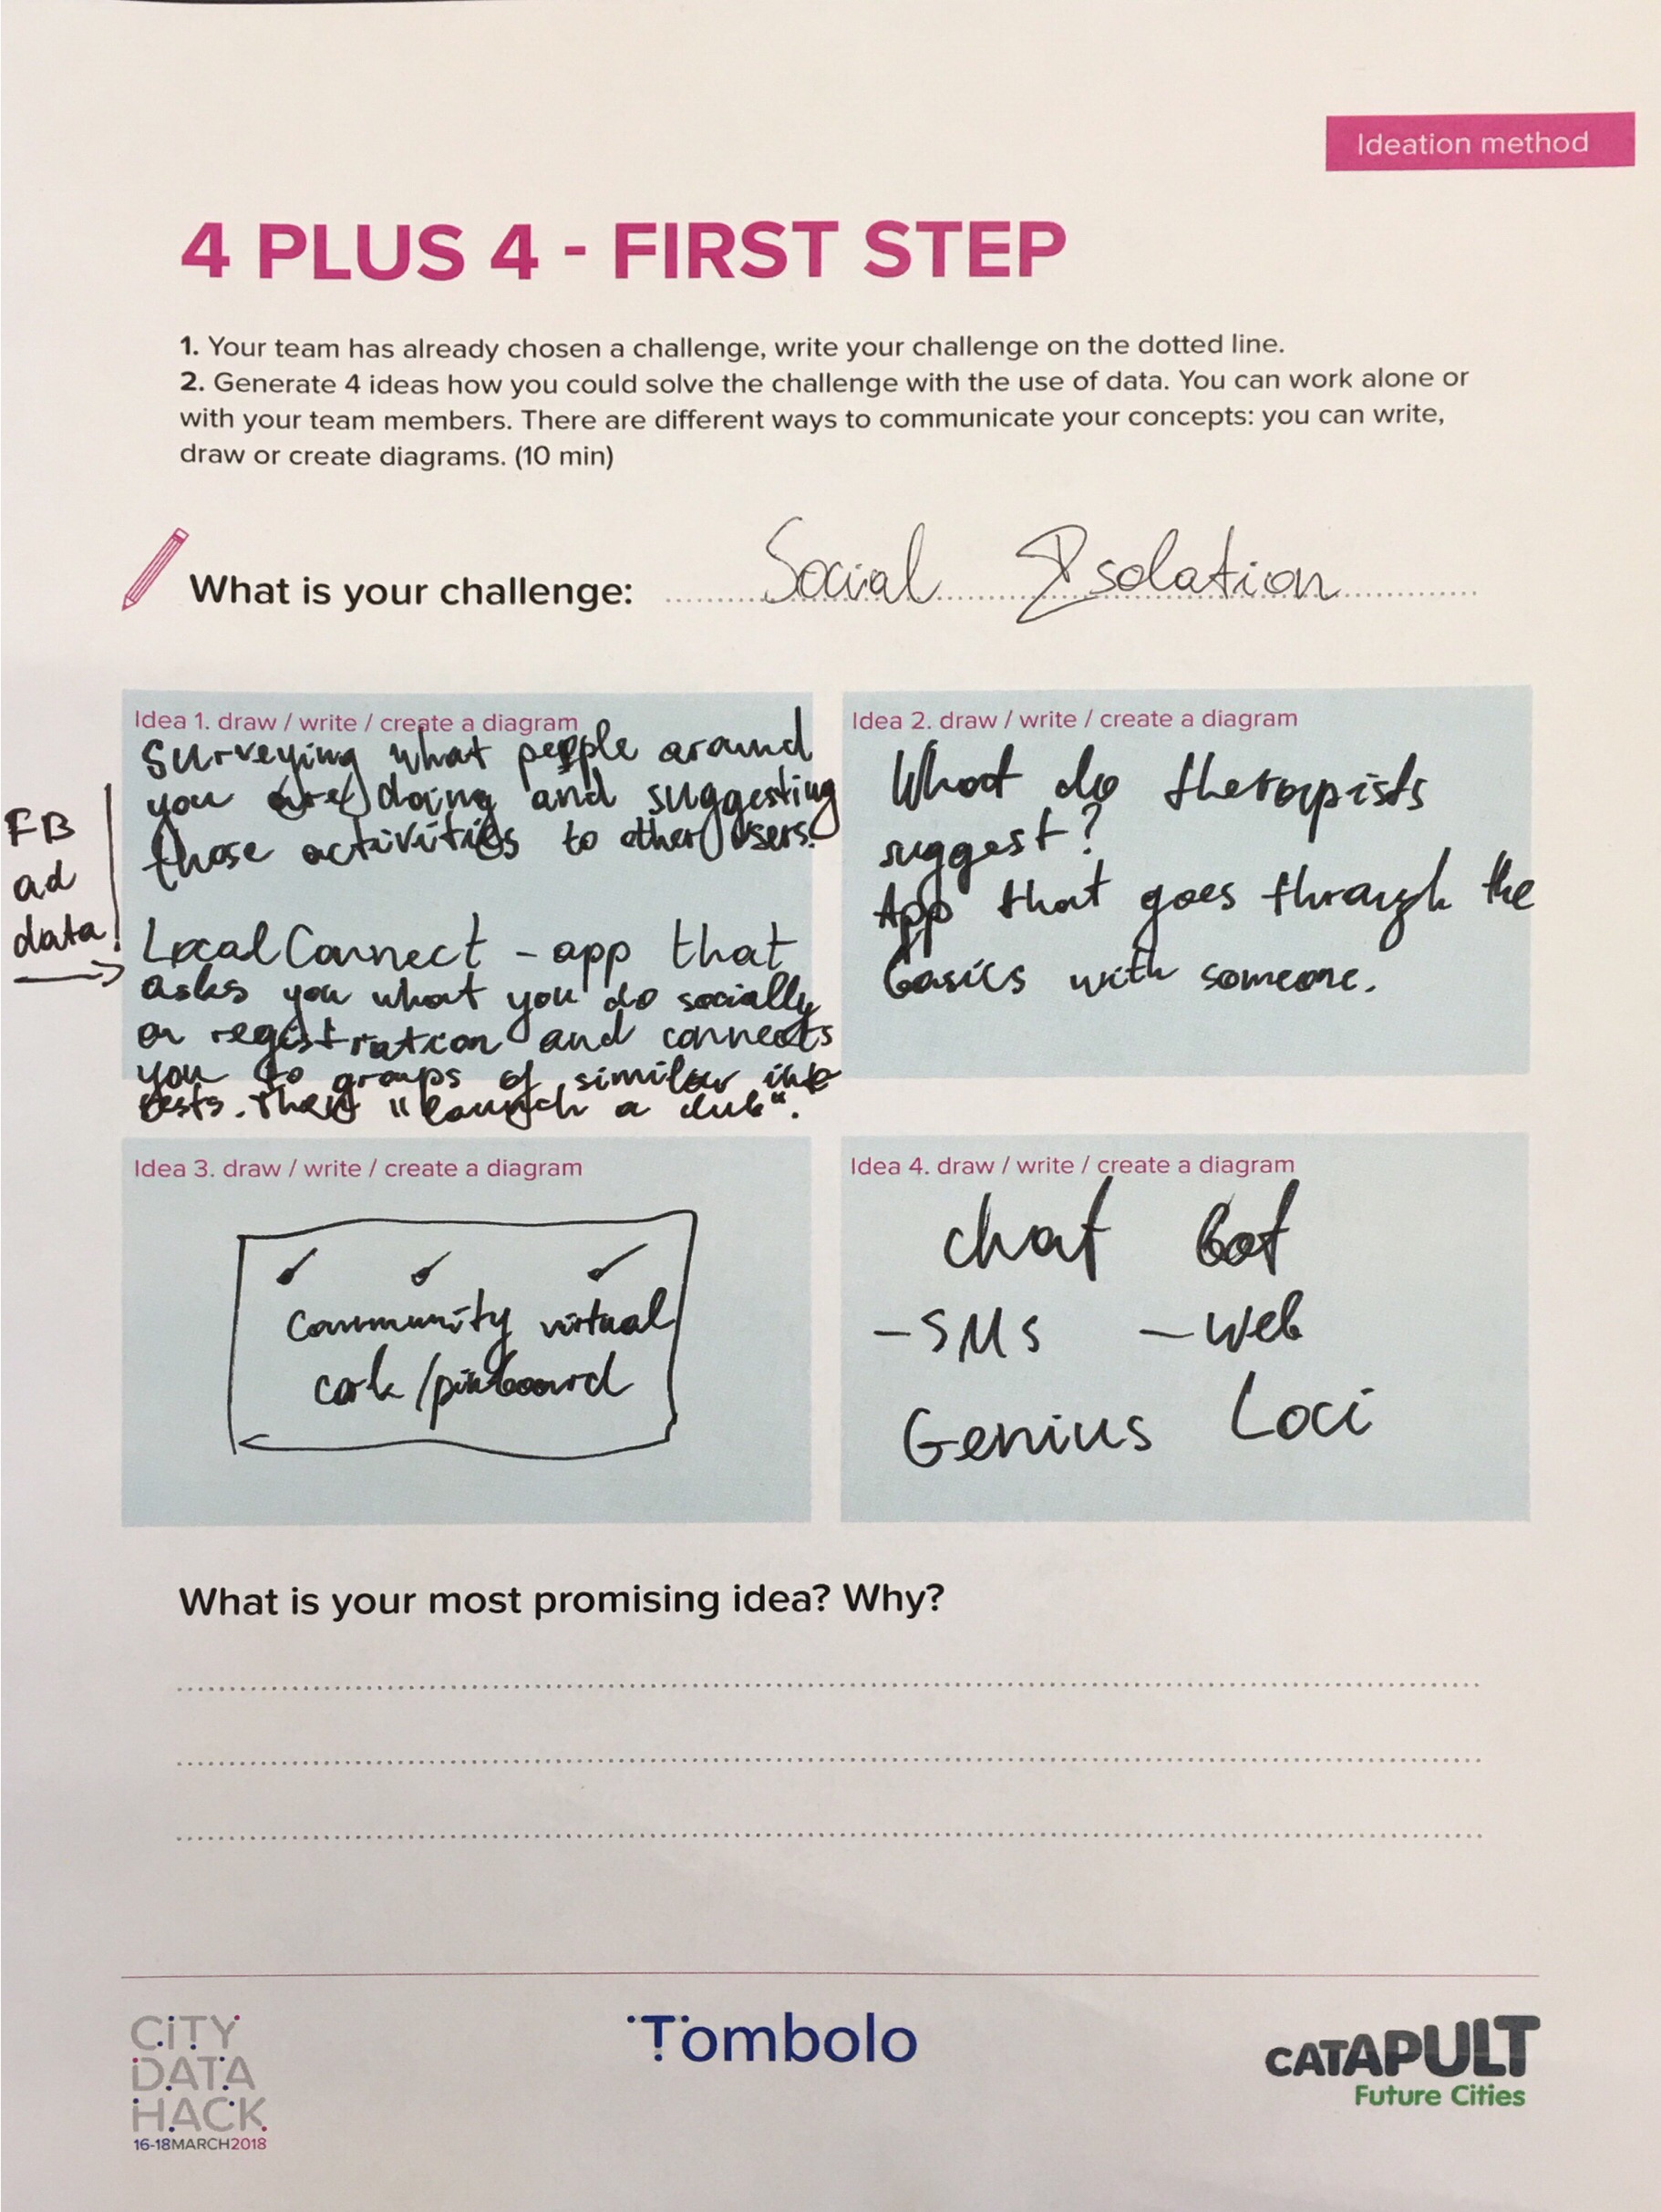 Ideation method
4 PLUS 4 - FIRST STEP
1. Your team has already chosen a challenge, write your challenge on the dotted line.
2. Generate 4 ideas how you could solve the challenge with the use of data. You can work alone or
with your team members. There are different ways to communicate your concepts: you can write,
draw or create diagrams. (10 min)
What is your challenge: Social Isolation
Idea 1. draw / write / create a diagram
Surveying what people around
you are doing and suggesting
those activities to other users.
FB
ad
data!
LocalConnect - app that
asks you what you do socially
on registration and connects
you to groups of similar inte
rests. They "launch a club".
Idea 2. draw / write / create a diagram
What do therapists
suggest?
App that goes through the
basics with someone.
Idea 3. draw / write / create a diagram
Community virtual
cork/pinboard
Idea 4. draw / write / create a diagram
chat bot
- SMS - web
Genius Loci
What is your most promising idea? Why?
CiTY
DATA
HACK
16-18MARCH2018
Tombolo
CATAPULT
Future Cities